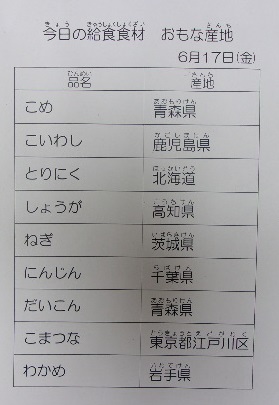 今日の給食食材 おもな産地
6月17日(金)
品名 産地
こめ 青森県
こいわし 鹿児島県
とりにく 北海道
しょうが 高知県
ねぎ 茨城県
にんじん 千葉県
だいこん 青森県
こまつな 東京都江戸川区
わかめ 岩手県